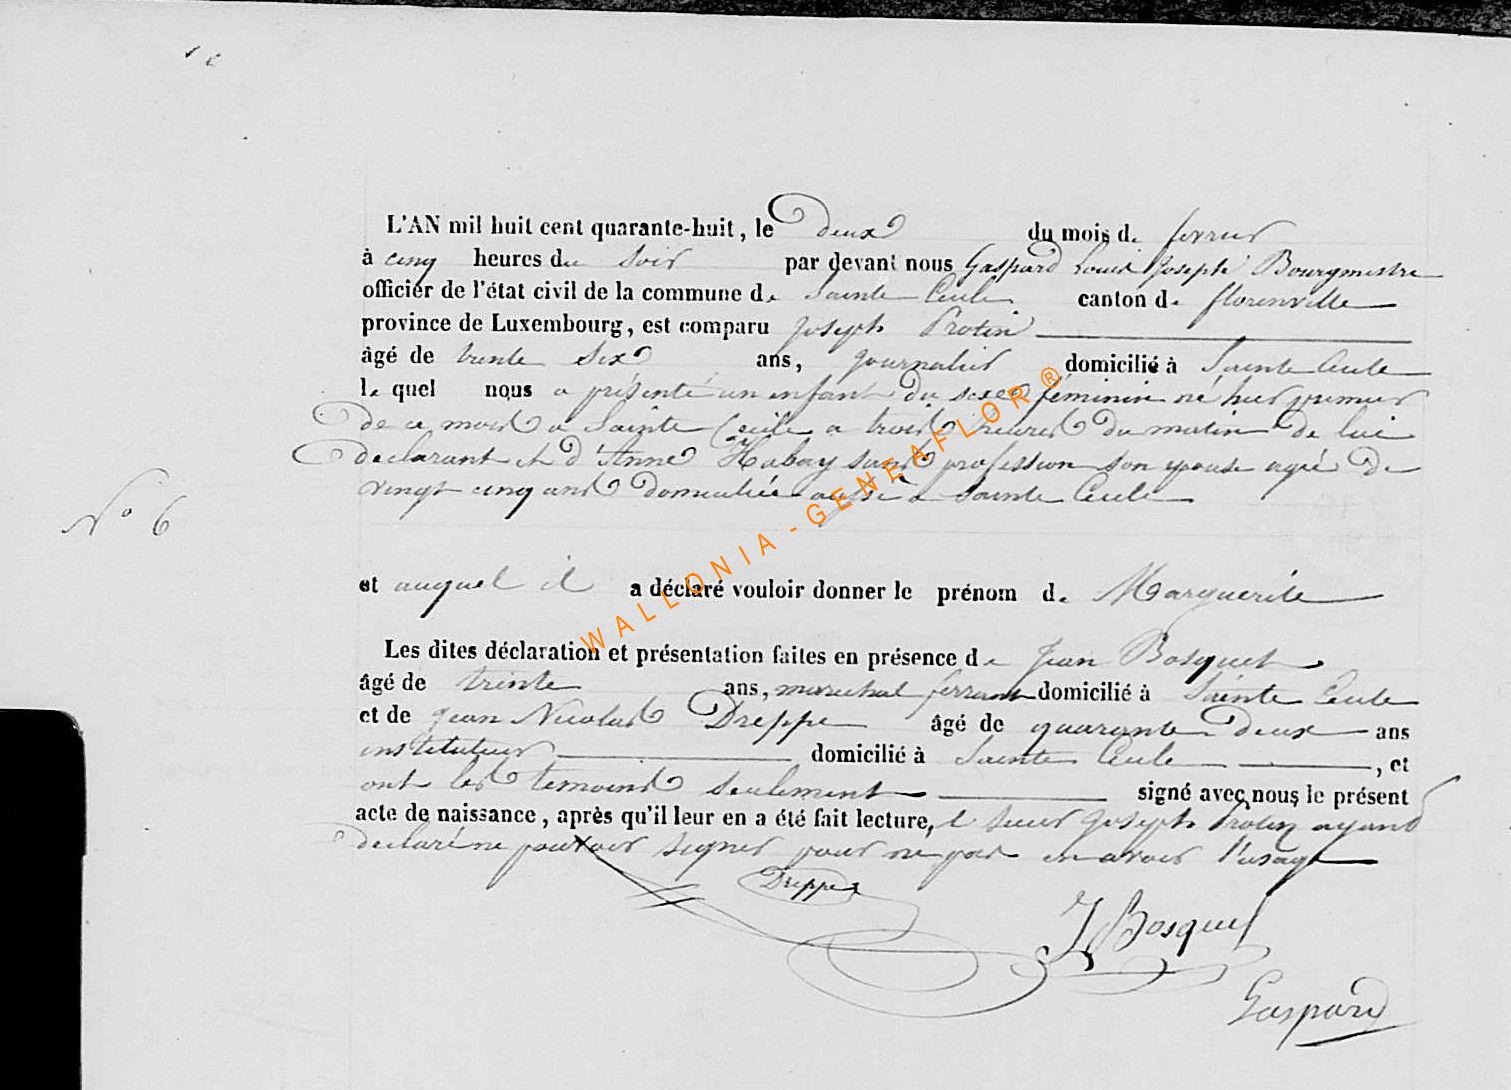 L'AN mil huit cent quarante-huit, le deux du mois de fevrier
à cinq heures du soir par devant nous Gaspard Louis Joseph Bourgmestre
officier de l'état civil de la commune de Sainte Cecile canton de florenville
province de Luxembourg, est comparu Joseph Protin
âgé de trente six ans, journalier domicilié à Sainte Cecile
le quel nous a présenté un enfant du sexe féminin né hier premier
de ce mois a Sainte Cecile a trois heures du matin de lui
declarant et d'Anne Habay sans profession son epouse agée de
vingt cinq ans domiciliée aussi a Sainte Cecile
N° 6
et auquel il a déclaré vouloir donner le prénom de Marguerite
Les dites déclaration et présentation faites en présence de Jean Bosquet
âgé de trente ans, marechal ferrant domicilié à Sainte Cecile
et de Jean Nicolas Dreppe âgé de quarante deux ans
instituteur domicilié à Sainte Cecile , et
ont les temoins seulement signé avec nous le présent
acte de naissance, après qu'il leur en a été fait lecture, le sieur Joseph Protin ayant
declaré ne pouvoir signer pour ne pas en avoir l'usage
Dreppe
J Bosquet
Gaspard
WALLONIA - GENEAFLOR ®